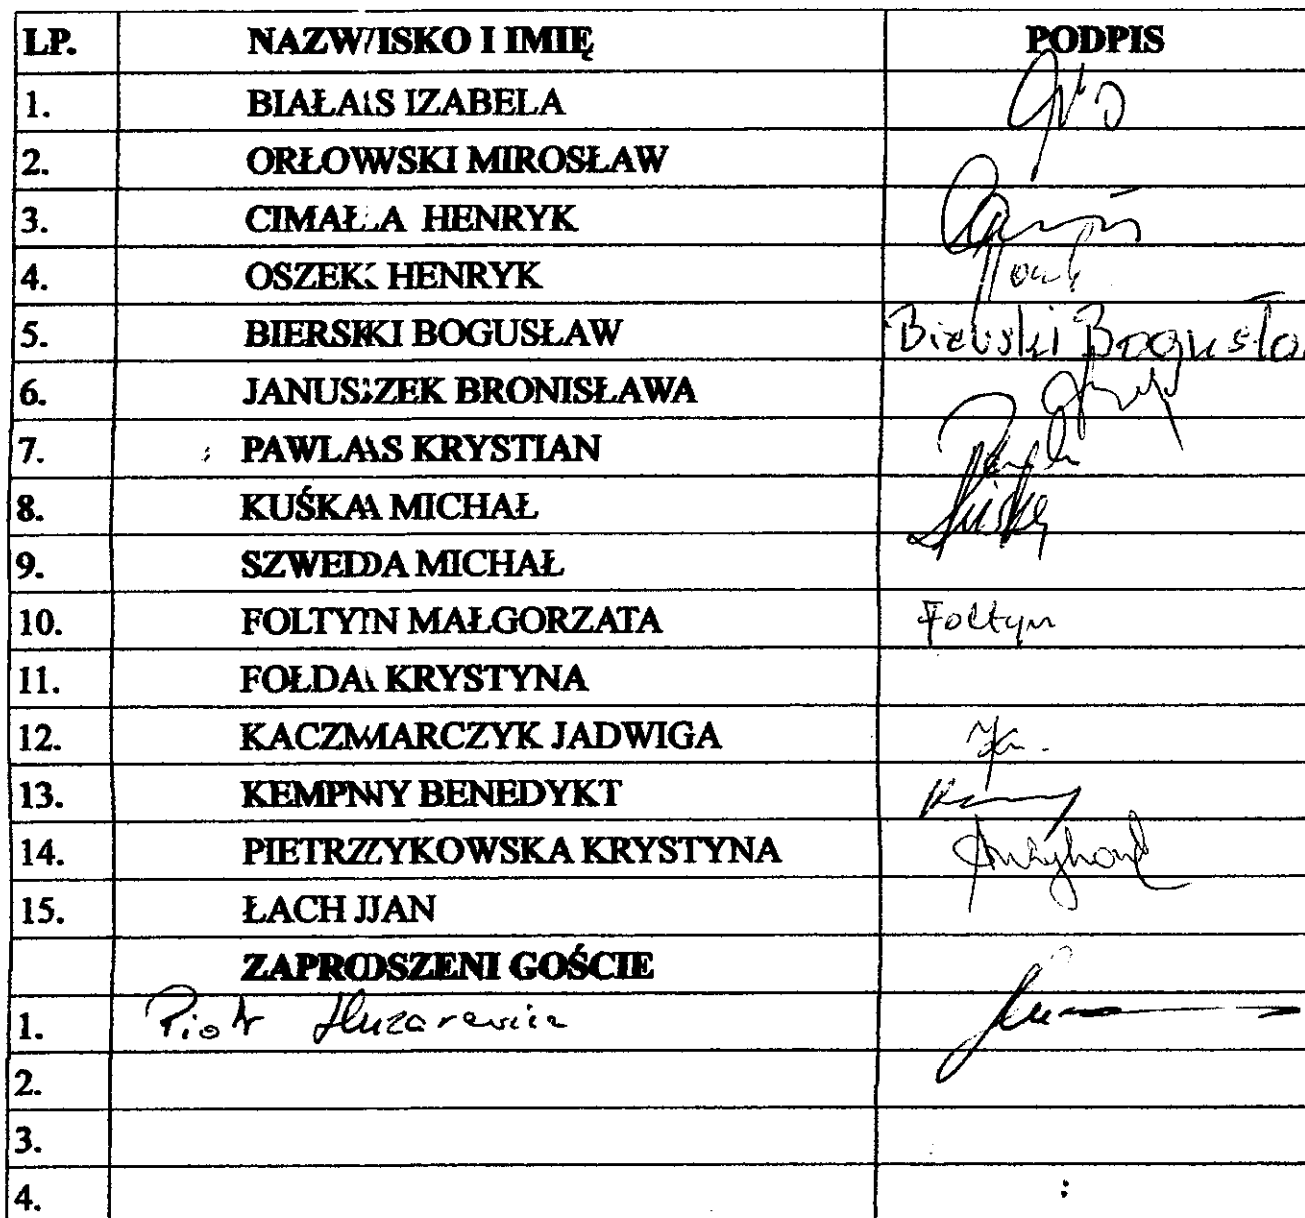 LP. NAZWISKO I IMIĘ PODPIS
1. BIAŁAS IZABELA
2. ORŁOWSKI MIROSŁAW
3. CIMAŁA HENRYK
4. OSZEK HENRYK
5. BIERSKI BOGUSŁAW Bierski Bogusła
6. JANUSZEK BRONISŁAWA
7. PAWLAS KRYSTIAN
8. KUŚKA MICHAŁ Kuśka
9. SZWEDA MICHAŁ
10. FOLTYN MAŁGORZATA Foltyn
11. FOŁDA KRYSTYNA
12. KACZMARCZYK JADWIGA
13. KEMPNY BENEDYKT
14. PIETRZYKOWSKA KRYSTYNA
15. ŁACH JAN
ZAPROSZENI GOŚCIE
1. Piotr
2.
3.
4.